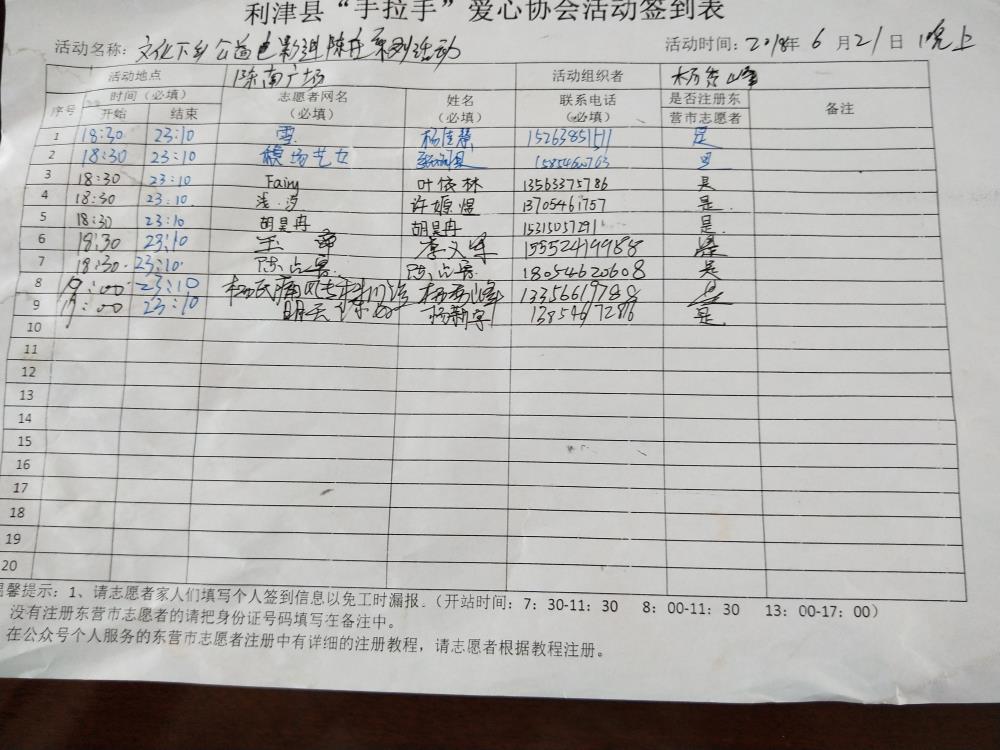 利津县“手拉手”爱心协会活动签到表
活动名称：文化下乡公益电影进陈庄系列活动 活动时间：2018年 6 月 21 日 晚上
活动地点 陈南广场 活动组织者 杨秀峰
序号 时间（必填） 志愿者网名（必填） 姓名（必填） 联系电话（必填） 是否注册东营市志愿者 备注
开始 结束
1 18:30 23:10 雪 杨佳慧 15263851511 是
2 18:30 23:10 艺女 是
3 18:30 23:10 Fairy 叶依林 13563375786 是
4 18:30 23:10 浅汐 许嫄煜 13705461757 是
5 18:30 23:10 胡昊冉 胡昊冉 15315057291 是
6 18:30 23:10 李义军 15552419988 是
7 18:30 23:10 18054620608 是
8 23:10 13356619788 是
9 23:10 明天 杨新宇 13854617286 是
10
11
12
13
14
15
16
17
18
19
20
馨提示：1、请志愿者家人们填写个人签到信息以免工时漏报。（开站时间：7：30-11：30 8：00-11：30 13：00-17：00）
没有注册东营市志愿者的请把身份证号码填写在备注中。
在公众号个人服务的东营市志愿者注册中有详细的注册教程，请志愿者根据教程注册。